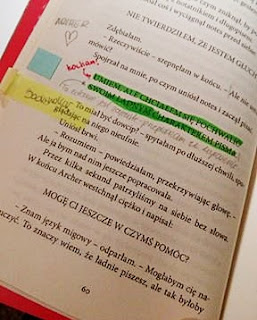 NIE TWIERDZIŁEM, ŻE JESTEM GŁUCH
Zdębiałam.
– Rzeczywiście – szepnęłam w końcu. – Ale nie
mówić?
Spojrzał na mnie, po czym uniósł notes i zaczął pisać.
kocham!
UMIEM, ALE CHCIAŁEM SIĘ POCHWALIĆ
SWOIM ŁADNYM CHARAKTEREM PISMA
– To miał być dowcip? – spytałam po dłuższej chwili, spo-
glądając na niego nieufnie.
Uniósł brwi.
– Rozumiem – powiedziałam, przekrzywiając głowę. –
Ale ja bym nad nim jeszcze popracowała.
Przez kilka sekund patrzyliśmy na siebie bez słowa.
W końcu Archer westchnął ciężko i napisał:
MOGĘ CI JESZCZE W CZYMŚ POMÓC?
– Znam język migowy – odparłam. – Mogłabym cię na-
uczyć. To znaczy wiem, że ładnie piszesz, ale tak byłoby
60